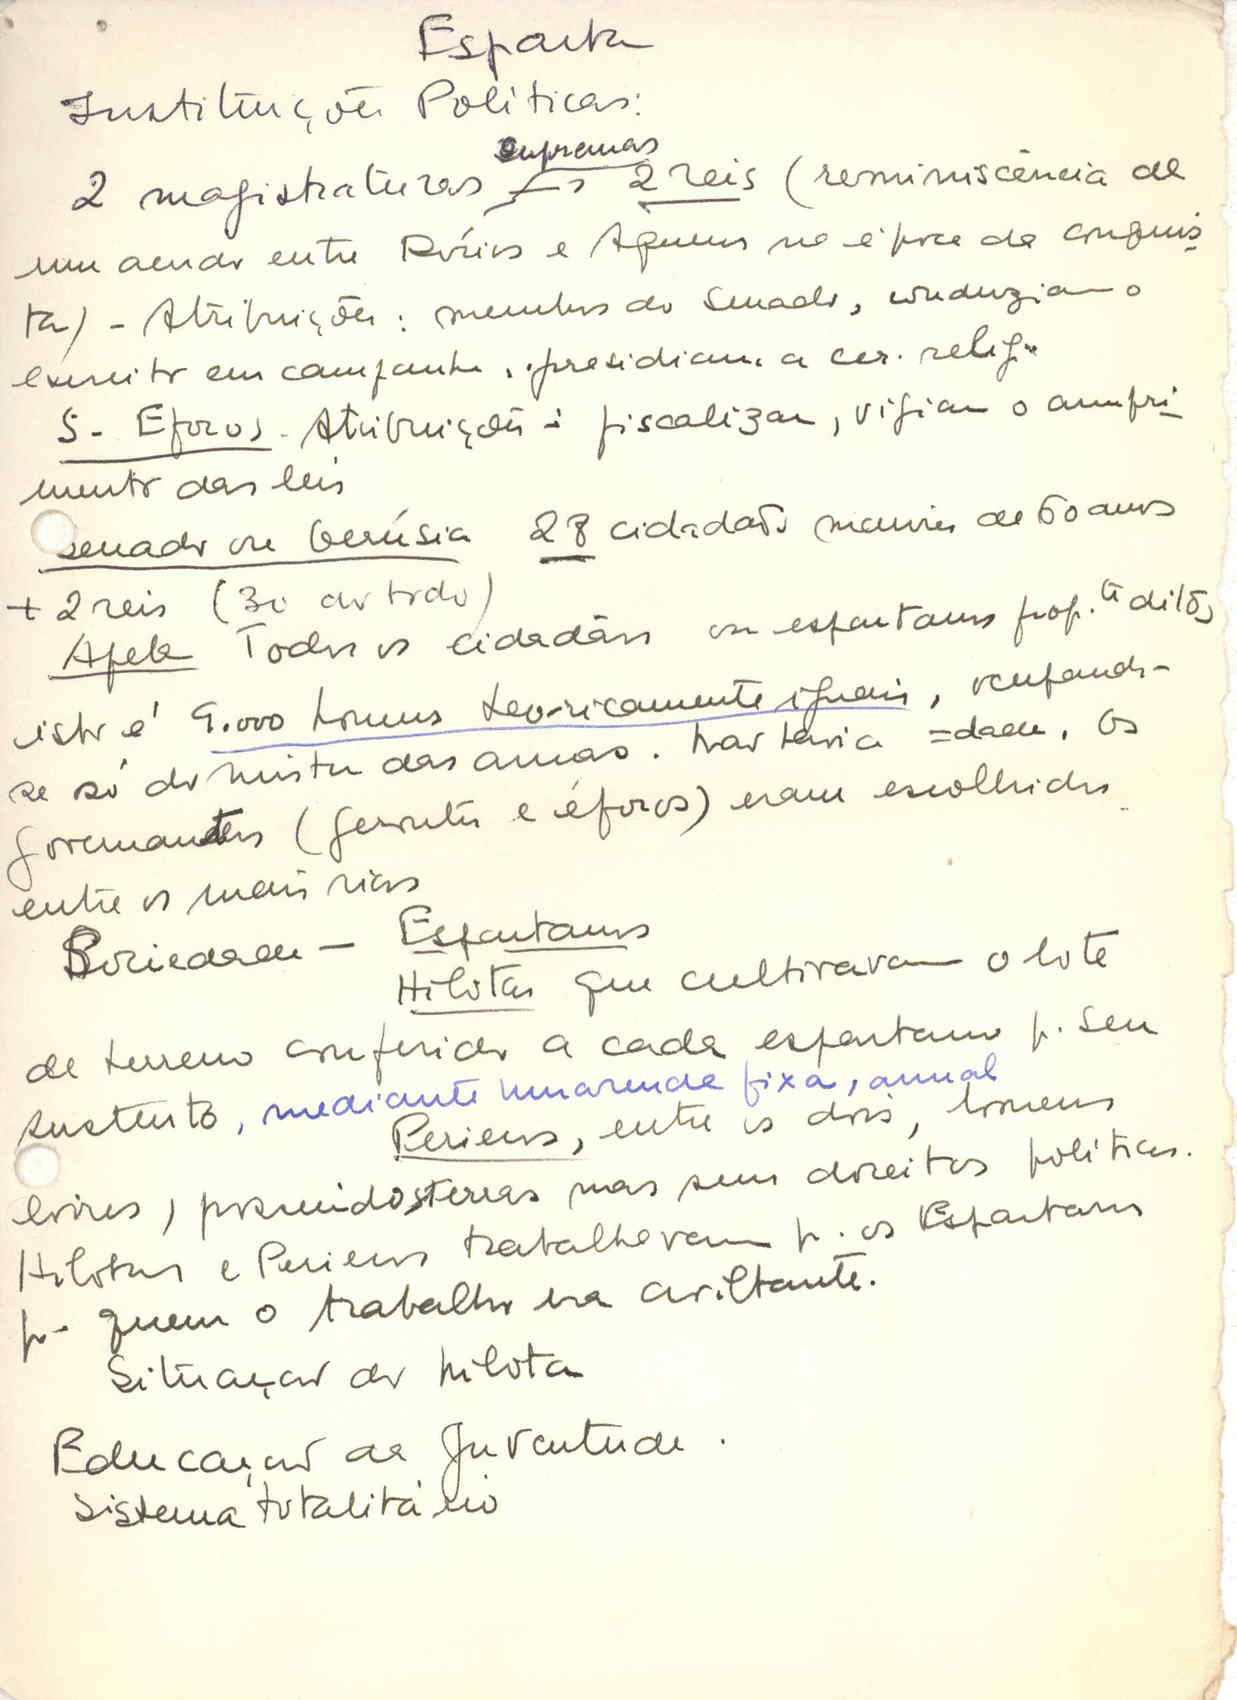 Esparta
Instituições Políticas:
supremas
2 magistraturas → 2 reis (reminiscência de
um acordo entre Dórios e Aqueus na época da conquis
ta) - Atribuições: membros do Senado, conduziam o
exercito em campanha, presidiam a cer. relig.
5 - Eforos - Atribuições: fiscalizar, vigiar o cumpri
mento das leis
senado ou Gerúsia 28 cidadãos maiores de 60 anos
+ 2 reis (30 ao todo)
Apela Todos os cidadãos ou espartanos prop.te ditos,
isto é 9.000 homens teoricamente iguais, ocupando-
se só do mister das armas. Não havia =dade. Os
governantes (gerontes e éforos) eram escolhidos
entre os mais ricos
Sociedade - Espartanos
Hilotas que cultivavam o lote
de terreno conferido a cada espartano p. seu
sustento, mediante uma renda fixa, anual
Periecos, entre os dois, homens
livres, possuidos terras mas sem direitos politicos.
Hilotas e Periecos trabalhavam p. os Espartanos
p. quem o trabalho era aviltante.
Situação do hilota
Educação da Juventude.
Sistema totalitário